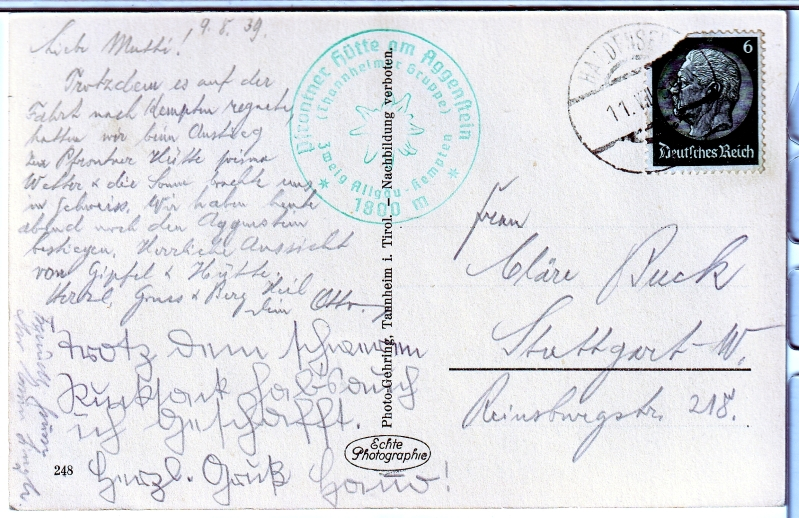 9.8.39.
Liebe Mutti!
Trotzdem es auf der
Fahrt nach Kempten regnete,
hatten wir beim Anstieg
zur Pfrontner Hütte prima
Wetter & die Sonne brachte uns
in Schweiss. Wir haben heute
abend noch den Aggenstein
bestiegen. Herrliche Aussicht
von Gipfel & Hütte.
Herzl. Gruss & Berg Heil
dein Otto.
Trotz dem schweren
Rucksack hab's auch
ich geschafft.
Herzl. Gruß Hans!
248
Pfrontner Hütte am Aggenstein
(Thannheimer Gruppe)
Zweig Allgäu-Kempten
1800 m
Photo-Gehring, Tannheim i. Tirol. – Nachbildung verboten.
Echte
Photographie
11. VIII
6
Deutsches Reich
Frau
Cläre Ruck
Stuttgart-W.
Reinsburgstr. 218.